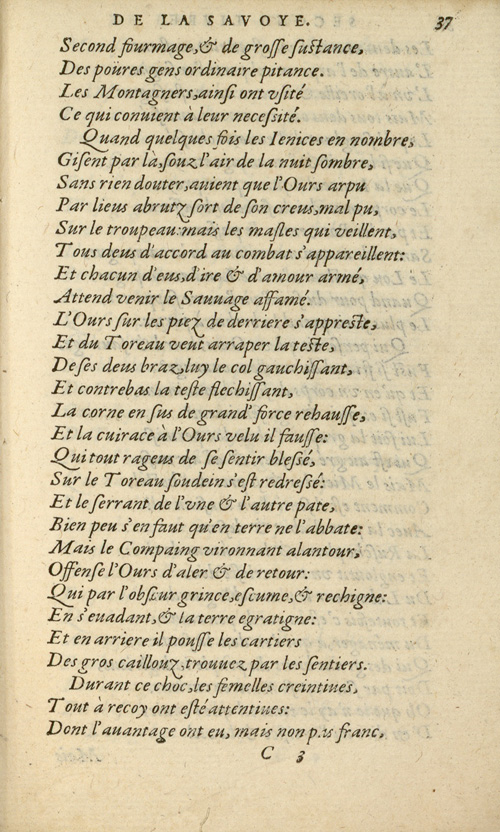 DE LA SAVOYE. 37
Second fourmage, & de grosse sustance,
Des poures gens ordinaire pitance.
Les Montagners, ainsi ont vsité
Ce qui conuient à leur necessité.
Quand quelques fois les Ienices en nombre,
Gisent par là, souz l'air de la nuit sombre,
Sans rien douter, auient que l'Ours arpu
Par lieus abrutz sort de son creus, mal pu,
Sur le troupeau: mais les masles qui veillent,
Tous deus d'accord au combat s'appareillent:
Et chacun d'eus, d'ire & d'amour armé,
Attend venir le Sauuage affamé.
L'Ours sur les piez de derriere s'appreste,
Et du Toreau veut arraper la teste,
De ses deus braz, luy le col gauchissant,
Et contrebas la teste flechissant,
La corne en sus de grand' force rehausse,
Et la cuirace à l'Ours velu il fausse:
Qui tout rageus de se sentir blessé,
Sur le Toreau soudein s'est redressé:
Et le serrant de l'vne & l'autre pate,
Bien peu s'en faut qu'en terre ne l'abbate:
Mais le Compaing vironnant alantour,
Offense l'Ours d'aler & de retour:
Qui par l'obscur grince, escume, & rechigne:
En s'euadant, & la terre egratigne:
Et en arriere il pousse les cartiers
Des gros caillouz, trouuez par les sentiers.
Durant ce choc, les femelles creintiues,
Tout a recoy ont esté attentiues:
Dont l'auantage ont eu, mais non pas franc,
C 3